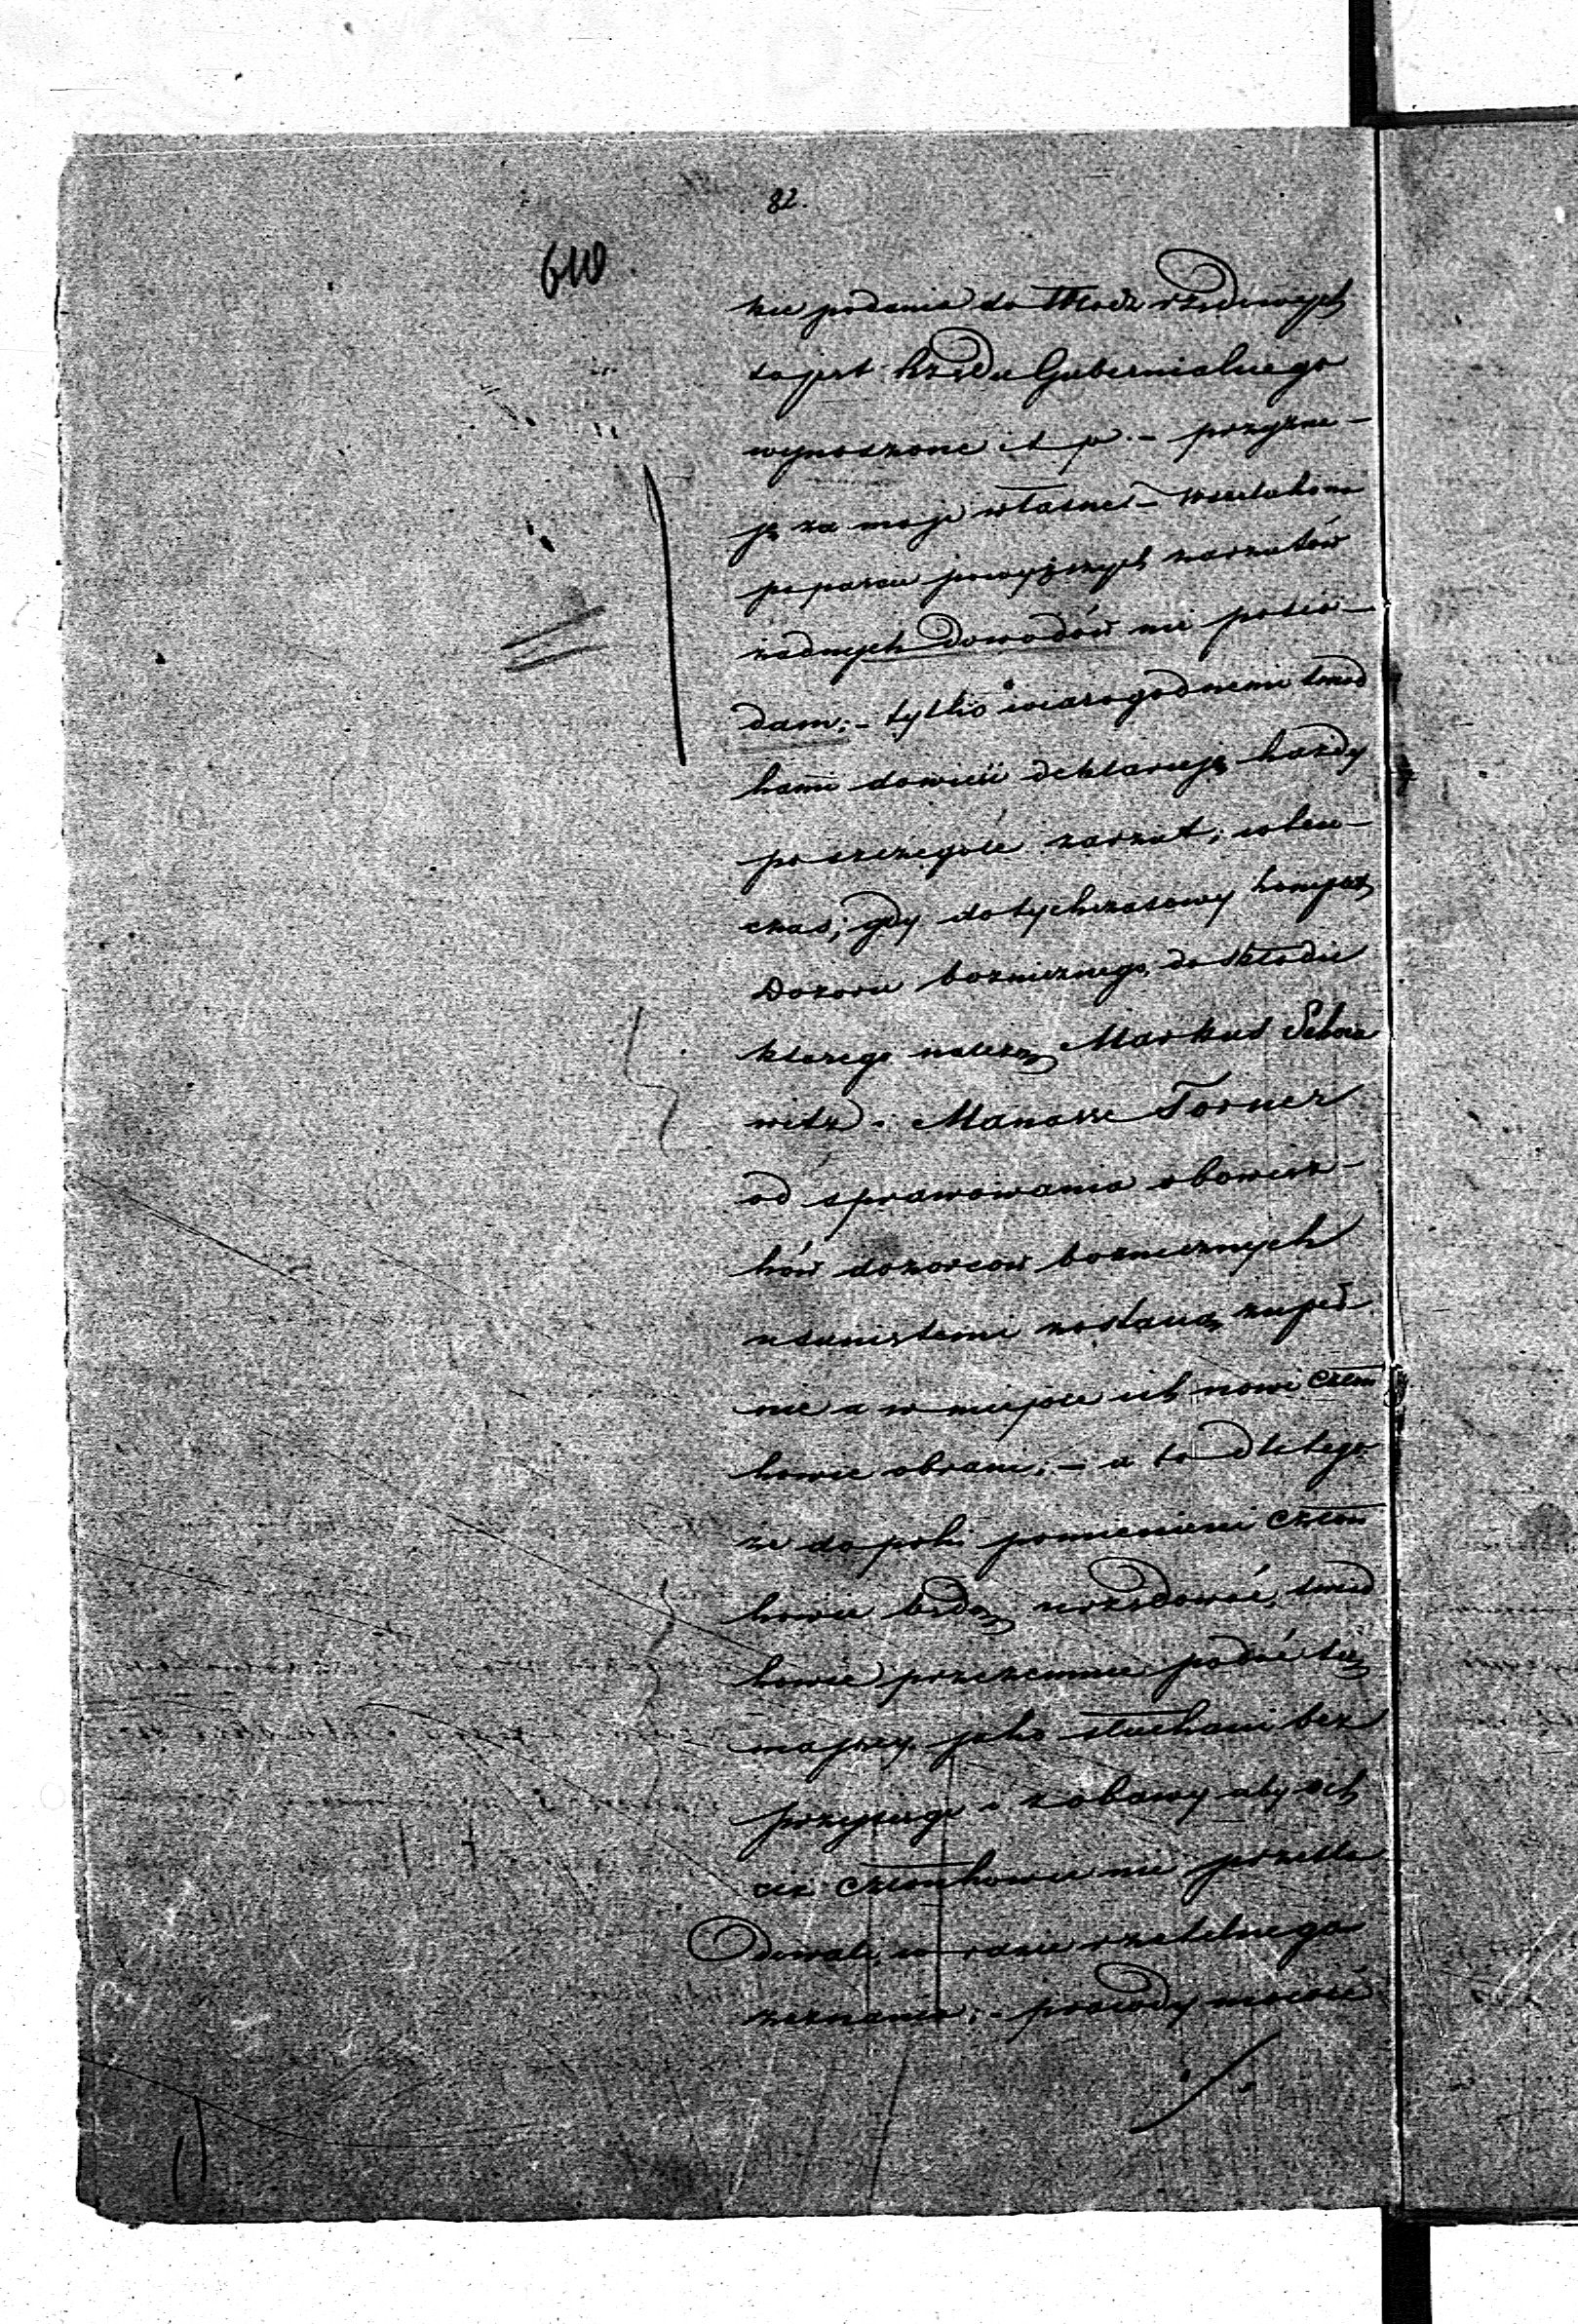 82.
610
kie podania do Władz rządowych
to jest Rządu Gubernialnego
wynoszone i t p. – przyzna-
ję za moje własne –
poparcie powyższych zarzutów
żadnych dowodów nie posia-
dam; – tylko wiarogodnemi świad
kami dowieść deklaruję każdy
poszczególe zarzut; wten-
czas; gdy dotychczasowy komplet
Dozoru bożnicznego do składu
którego należą Markus Schoa
witz i Manasse Torner
od sprawowania obowiąz-
ków dozorców bożnicznych
usuniętemi zostaną zupeł
nie a w miejsce ich nowi Człon
kowie obrani; – a to dla tego
że dopóki pomienieni Człon
kowie będą urzędować, świad
kowie przezemnie podać się
mający jako słuchani bez
przysięgi z obawy aby ich
ciż Członkowie nie prześla
dowali, w razie rzetelnego
zeznania; – prawdy
./.